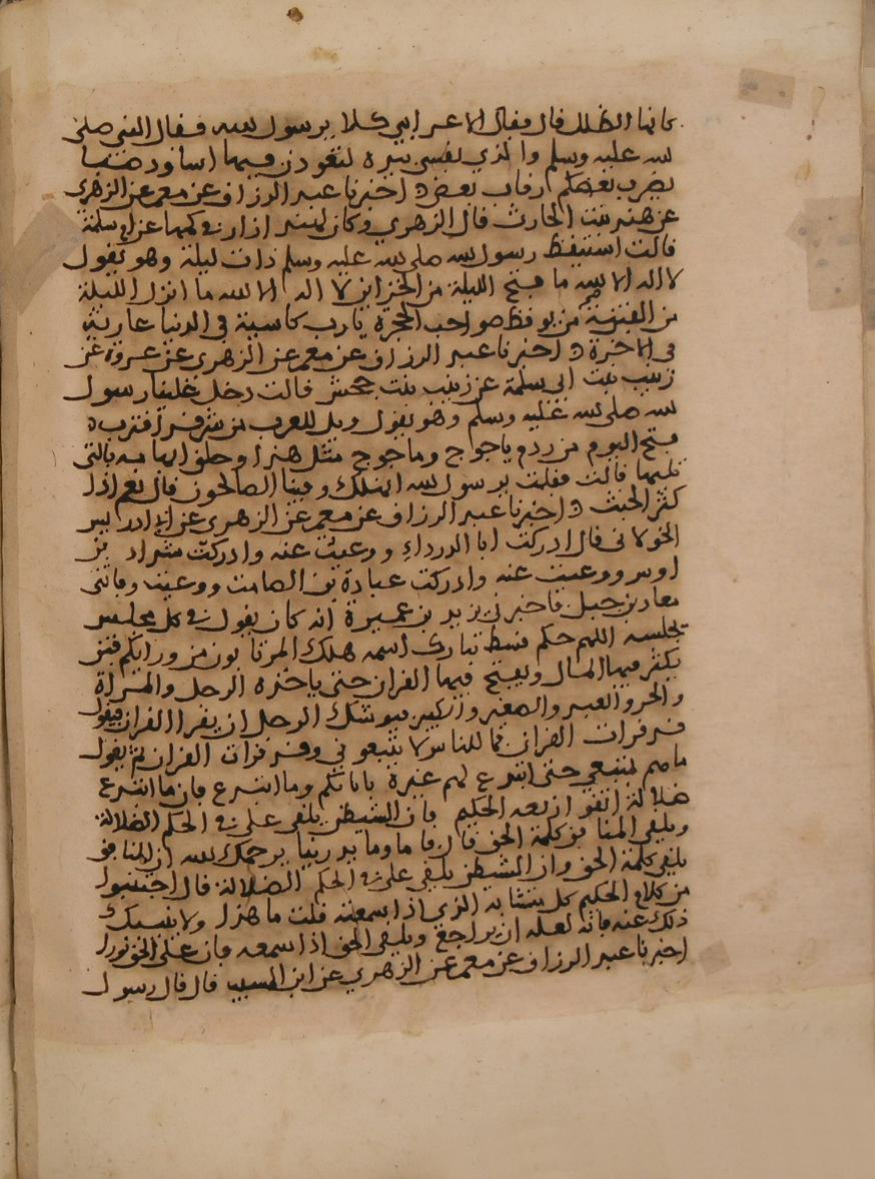 كانها الظلل قال فقال الاعرابي كلا يرسول لله فقال النبي صلى
لله عليه وسلم والذي نفسي بيده لتعودن فيها اساود صبا
يضرب بعضكم رقاب بعض اخبرنا عبد الرزاق عن معمر عن الزهري
عن هند بنت الحارث قال الزهري وكان لهند ازار في كمها عن ام سلمة
قالت استيقظ رسول لله صلى لله عليه وسلم ذات ليلة وهو يقول
لا اله الا لله ما فتح الليلة من الخزاين لا اله الا لله ما انزل الليلة
من الفتنة من يوقظ صواحب الحجرة يا رب كاسية في الدنيا عارية
في الاخرة اخبرنا عبد الرزاق عن معمر عن الزهري عن عروة عن
زينب بنت ابي سلمة عن زينب بنت جحش قالت دخل علينا رسول
لله صلى لله عليه وسلم وهو يقول ويل للعرب من شر قد اقترب
فتح اليوم من ردم ياجوج وماجوج مثل هذا وحلق ابهامه بالتي
تليها قالت فقلت يرسول لله انهلك وفينا الصالحون قال نعم اذا
كثر الخبث اخبرنا عبد الرزاق عن معمر عن الزهري عن ابي ادريس
الخولاني قال ادركت ابا الدرداء ووعيت عنه وادركت شداد بن
اوس ووعيت عنه وادركت عبادة بن الصامت ووعيت وفاتني
معاذ بن جبل فاخبرني يزيد بن عميرة انه كان يقول في كل مجلس
يجلسه اللهم حكم قسط تبارك اسمه هلك المرتابون من ورائكم فتن
يكثر فيها المال ويفتح فيها القران حتى ياخذه الرجل والمراة
والحر والعبد والصغير والكبير فيوشك الرجل ان يقرا القران فيقول
قد قرات القران فما للناس لا يتبعوني وقد قرات القران ثم يقول
ما هم بمتبعي حتى ابتدع لهم غيره فاياكم وما ابتدع فان ما ابتدع
ضلالة اتقوا زيغة الحكيم فان الشيطن يلقي على في الحكم الضلالة
ويلقي المنافق كلمة الحق قال قلنا وما يدرينا يرحمك لله ان المنافق
يلقي كلمة الحق وان الشيطن يلقي على في الحكم الضلالة قال اجتنبوا
من كلام الحكيم كل متشابه الذي اذا سمعته قلت ما هذا ولا ينسيك
ذلك عنه فانه لعله ان يراجع ويلقي الحق اذا سمعه فان على الحق نورا
اخبرنا عبد الرزاق عن معمر عن الزهري عن ابن المسيب قال قال رسول